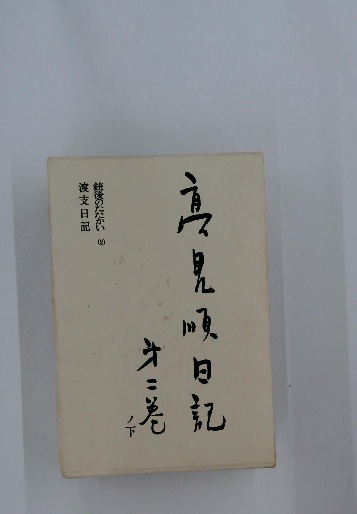 高見順日記
第二巻
ノ下
銃後のたたかい (2)
渡支日記